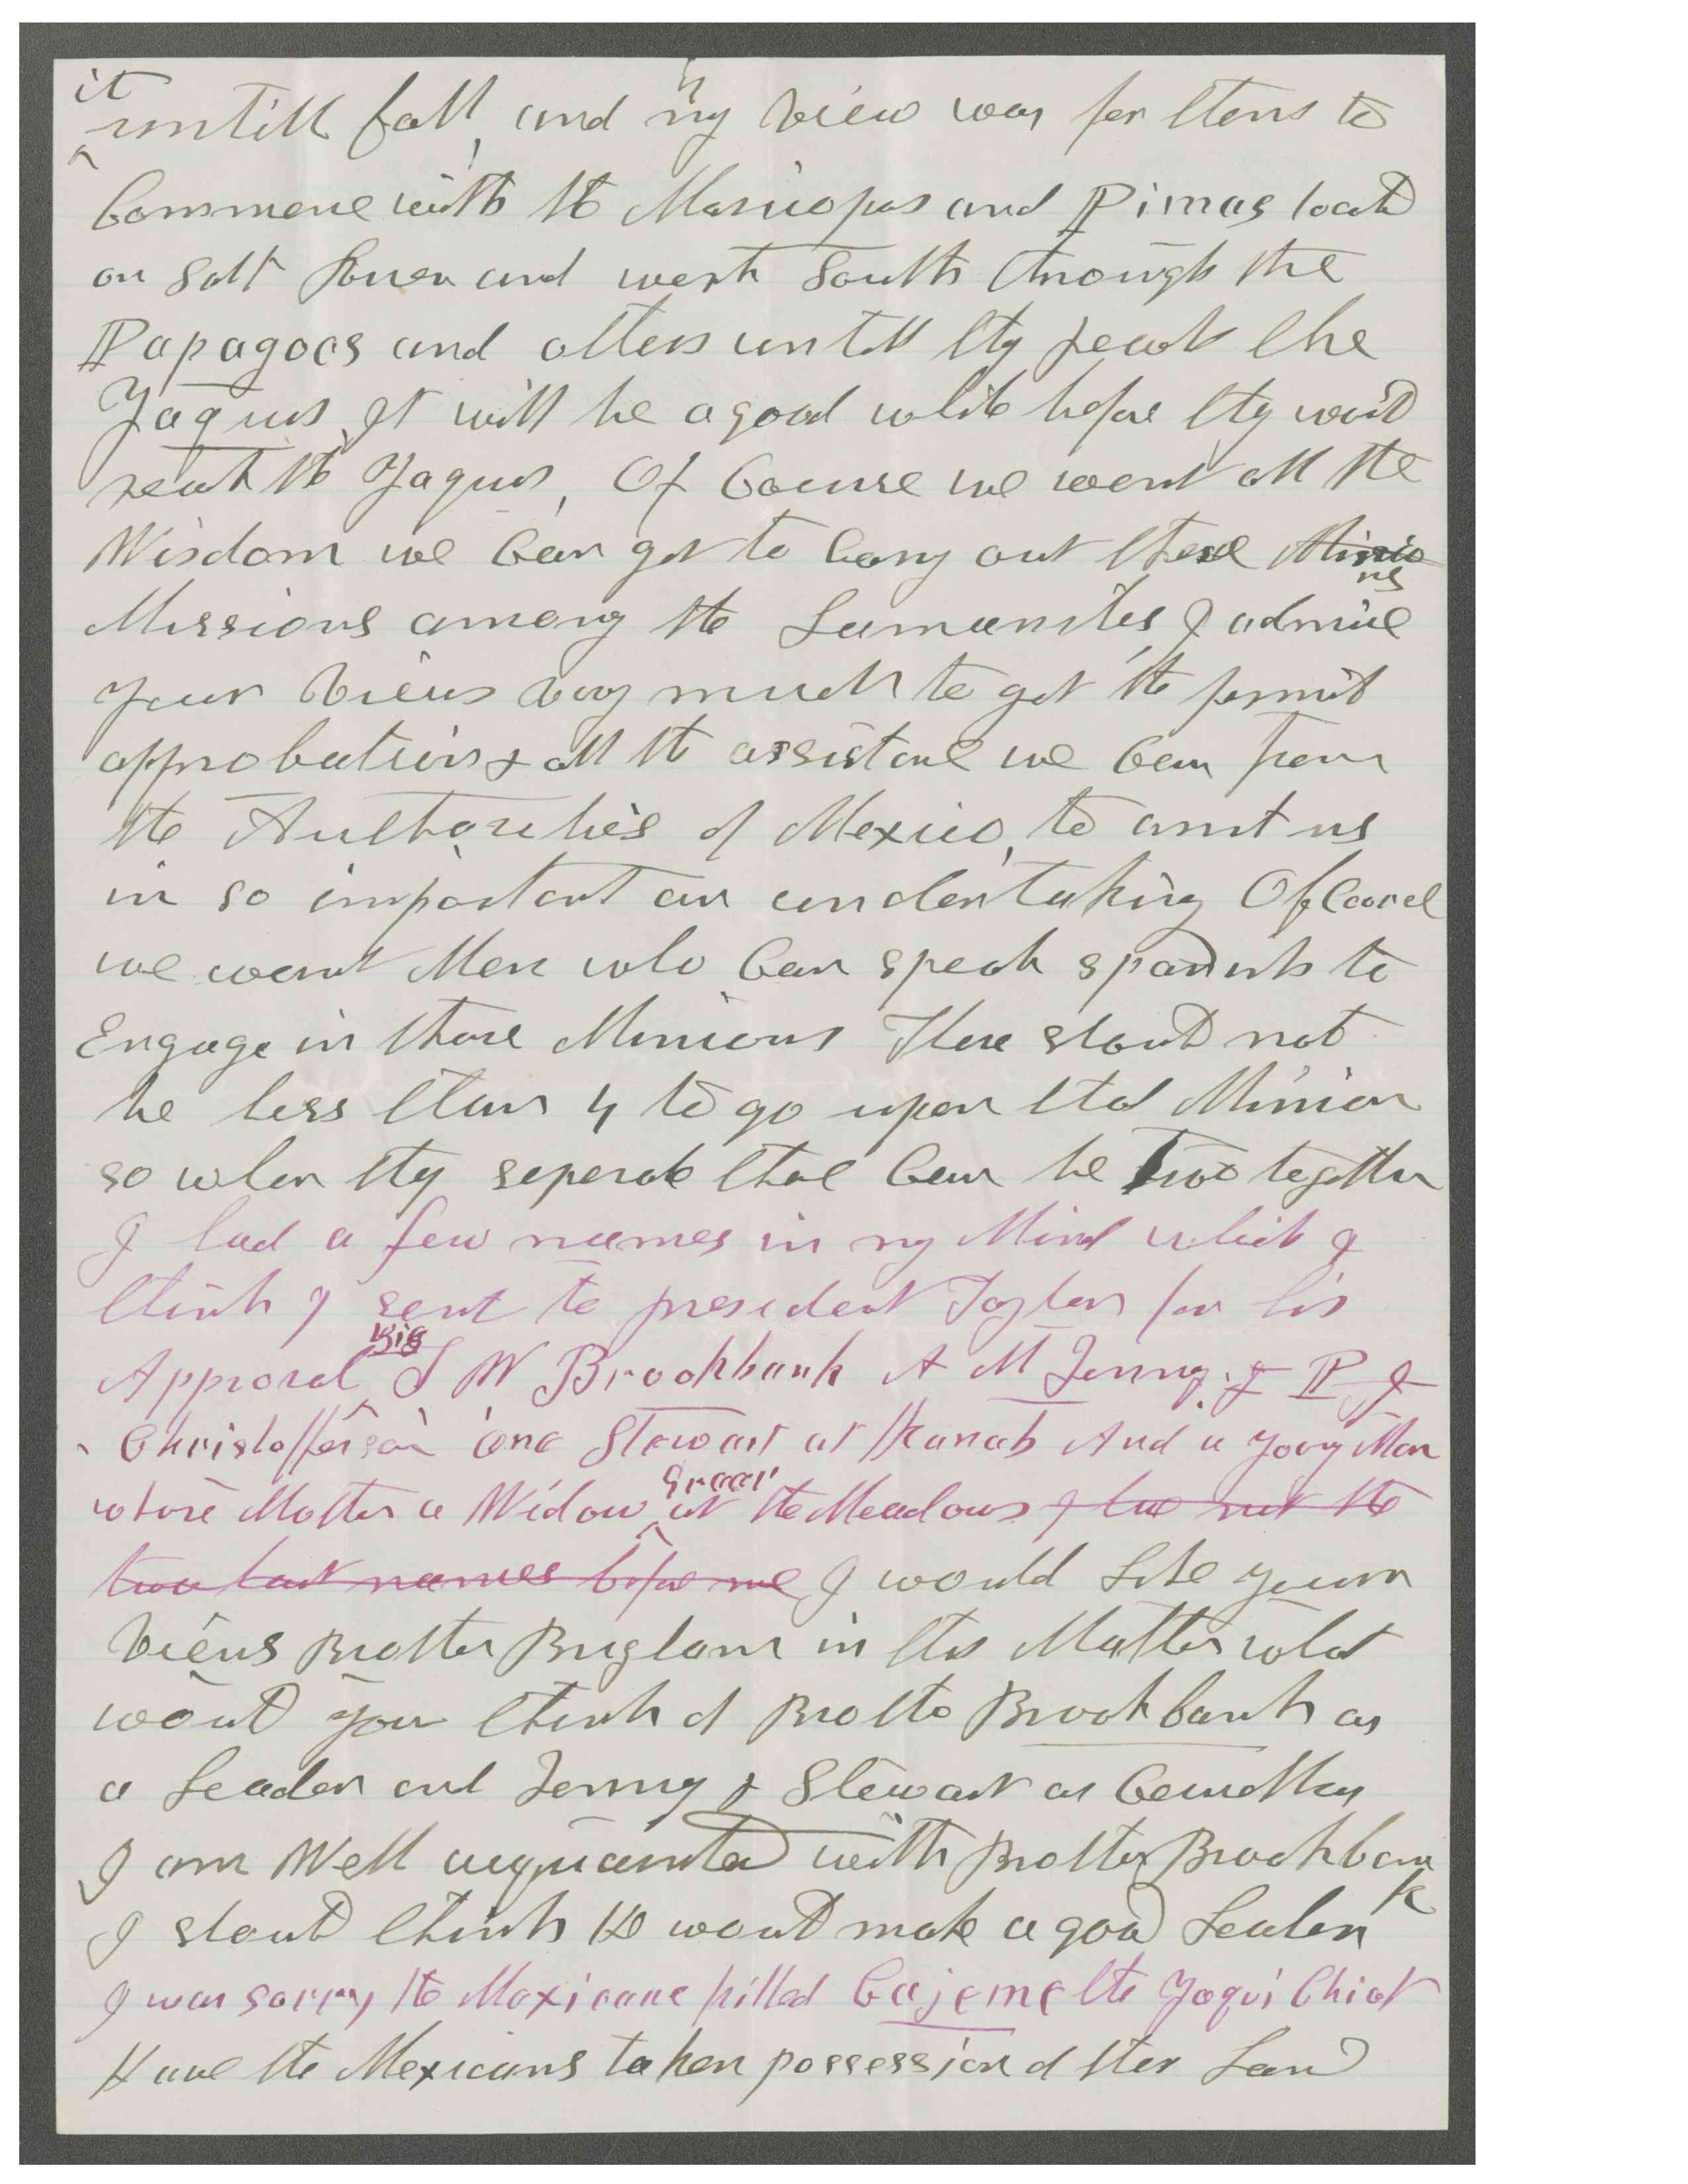 it
untill fall, and my view was for them to
Commence with the Maricopas and Pimas locatd
on Salt River and work South through the
Papagoes and others untill they reach the
Yaquis, It will be a good while before they would
reach the Yaquis, Of Course we want all the
Wisdom we Can get to Cary out these Missio
ns
Missions among the Lamanites, I admire
your views very much to get the permit
approbation & all the assistance we Can from
the Authorities of Mexico, to assist us
in so important an undertaking Of Course
we want Men who Can speak spanish to
Engage in those Missions There should not
be less than 4 to go upon that Mission
so when they seperate there Can be two together
I had a few names in my Mind which I
think I sent to president Taylor for his
Approval I W Brockbank A M Tenny. & P I
Christofferson one Stewart at Kanab And a young Man
Greer
whose Mother a Widow at the Meadows I have not the
two last names before me I would like your
views Brother Brigham in this Matter what
would you think of Brother Brockbank as
a Leader and Tenny & Stewart as
I am Well acquainted with Brother Brockban
k
I should think He would make a good Leader
I was sorry the Mexicans killed Cajeme the Yaqui Chief
Have the Mexicans taken possession of their Land